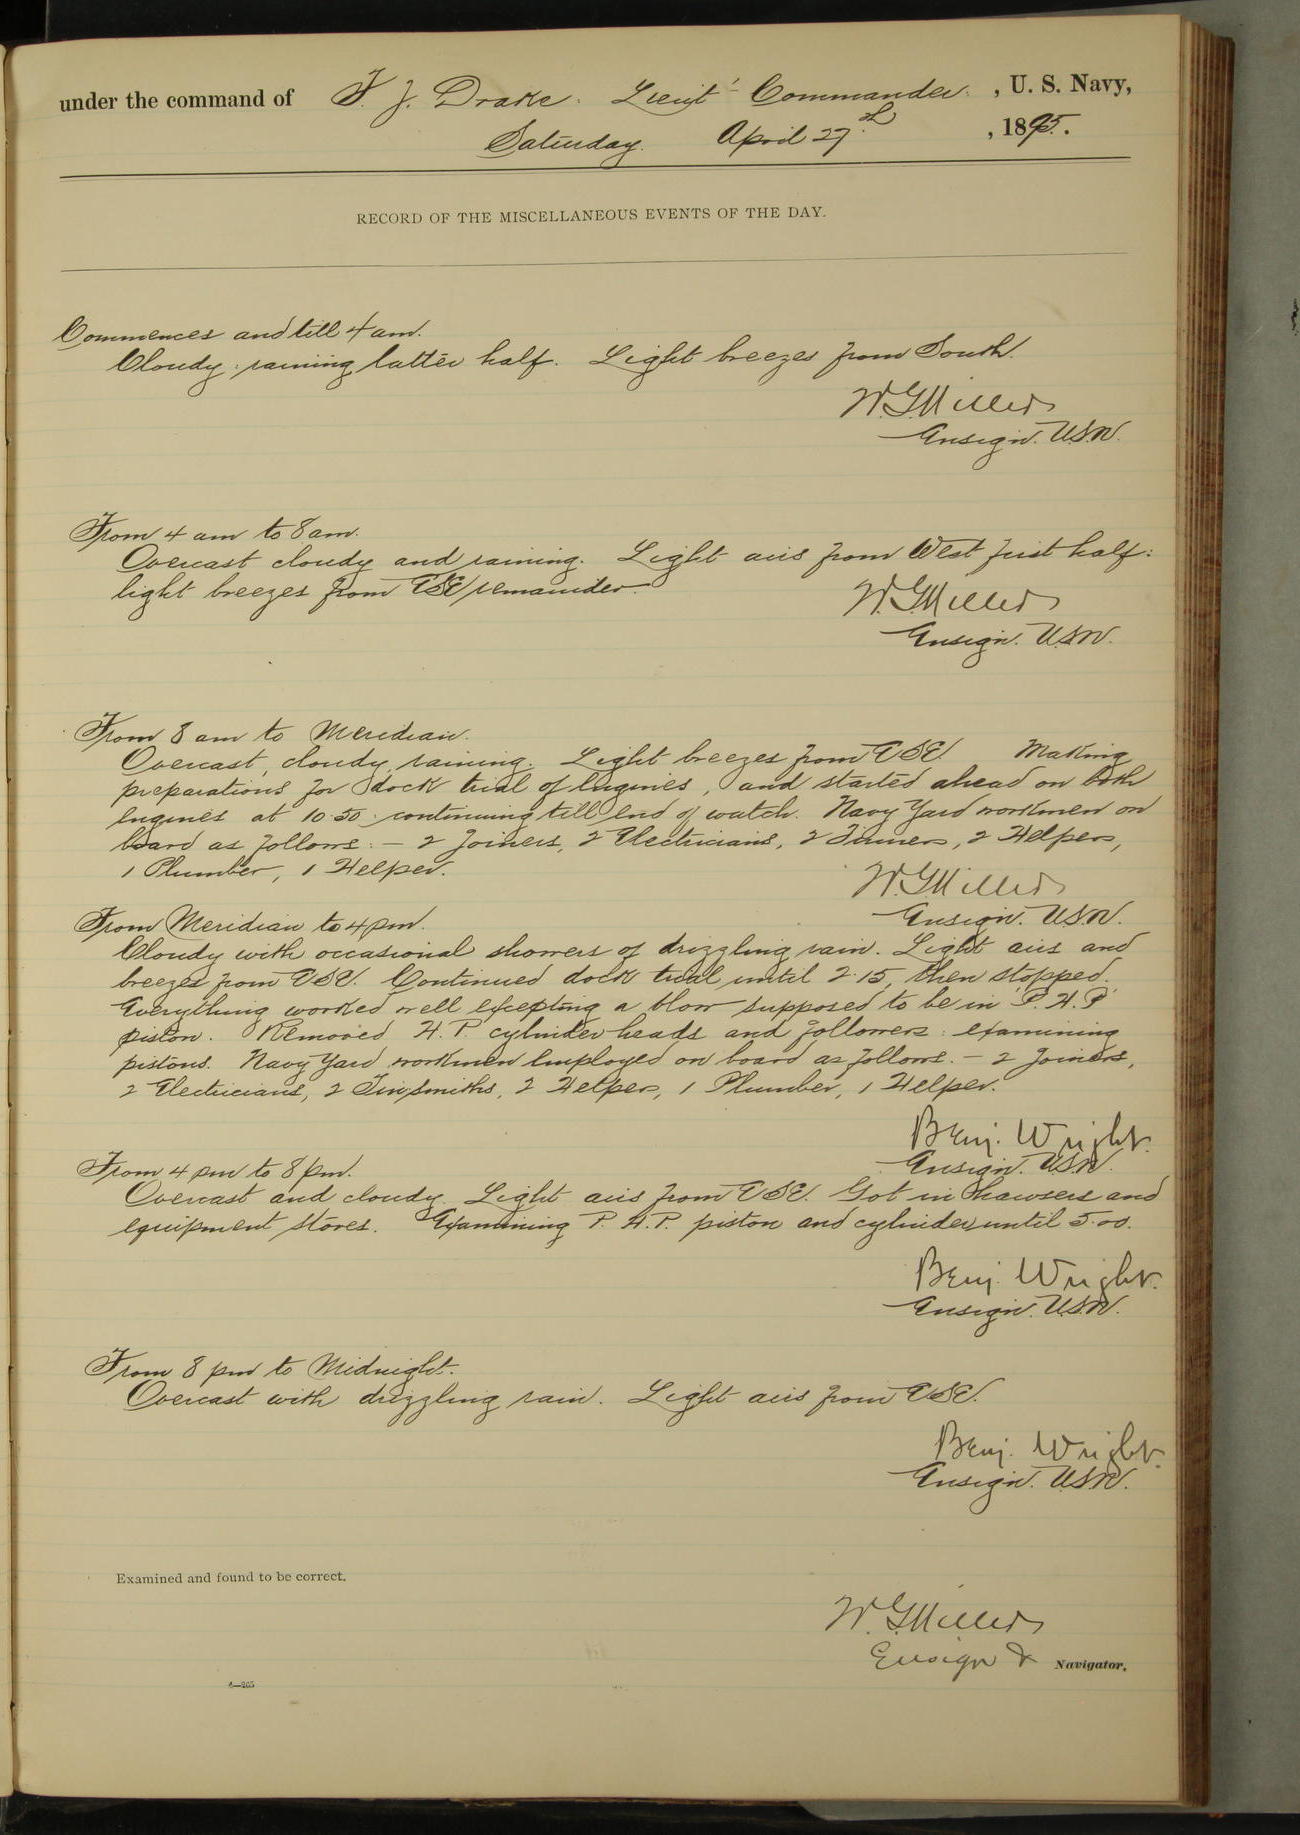 under the command of F. J. Drake. Lieut. Commander. , U. S. Navy,
Saturday. April 27th. , 1895.
RECORD OF THE MISCELLANEOUS EVENTS OF THE DAY.
Commences and till 4 am.
Cloudy: raining latter half. Light breezes from South.
W.G. Miller
Ensign. U.S.N.
From 4 am to 8 am.
Overcast cloudy and raining. Light airs from West first half:
light breezes from ESE remainder.
W.G. Miller
Ensign. U.S.N.
From 8 am to Meridian.
Overcast, cloudy, raining. Light breezes from ESE. Making
preparations for dock trial of Engines, and started ahead on both
Engines at 10.50: continuing till End of watch. Navy Yard workmen on
board as follows: — 2 Joiners, 2 Electricians, 2 Tinners, 2 Helpers,
1 Plumber, 1 Helper.
W.G. Miller
Ensign. U.S.N.
From Meridian to 4 pm.
Cloudy with occasional showers of drizzling rain. Light airs and
breezes from ESE. Continued dock trial until 2.15, then stopped.
Everything worked well excepting a blow supposed to be in P. H. P.
piston. Removed H. P. cylinder heads and followers: examining
pistons. Navy Yard workmen Employed on board as follows. — 2 Joiners,
2 Electricians, 2 Tinsmiths, 2 Helpers, 1 Plumber, 1 Helper.
Benj. Wright.
Ensign. U.S.N.
From 4 pm to 8 pm.
Overcast and cloudy. Light airs from ESE. Got in hawsers and
equipment stores. Examining P. H. P. piston and cylinder until 5.00.
Benj. Wright.
Ensign. U.S.N.
From 8 pm to Midnight.
Overcast with drizzling rain. Light airs from ESE.
Benj. Wright.
Ensign. U.S.N.
Examined and found to be correct.
W. G. Miller
Ensign & Navigator.